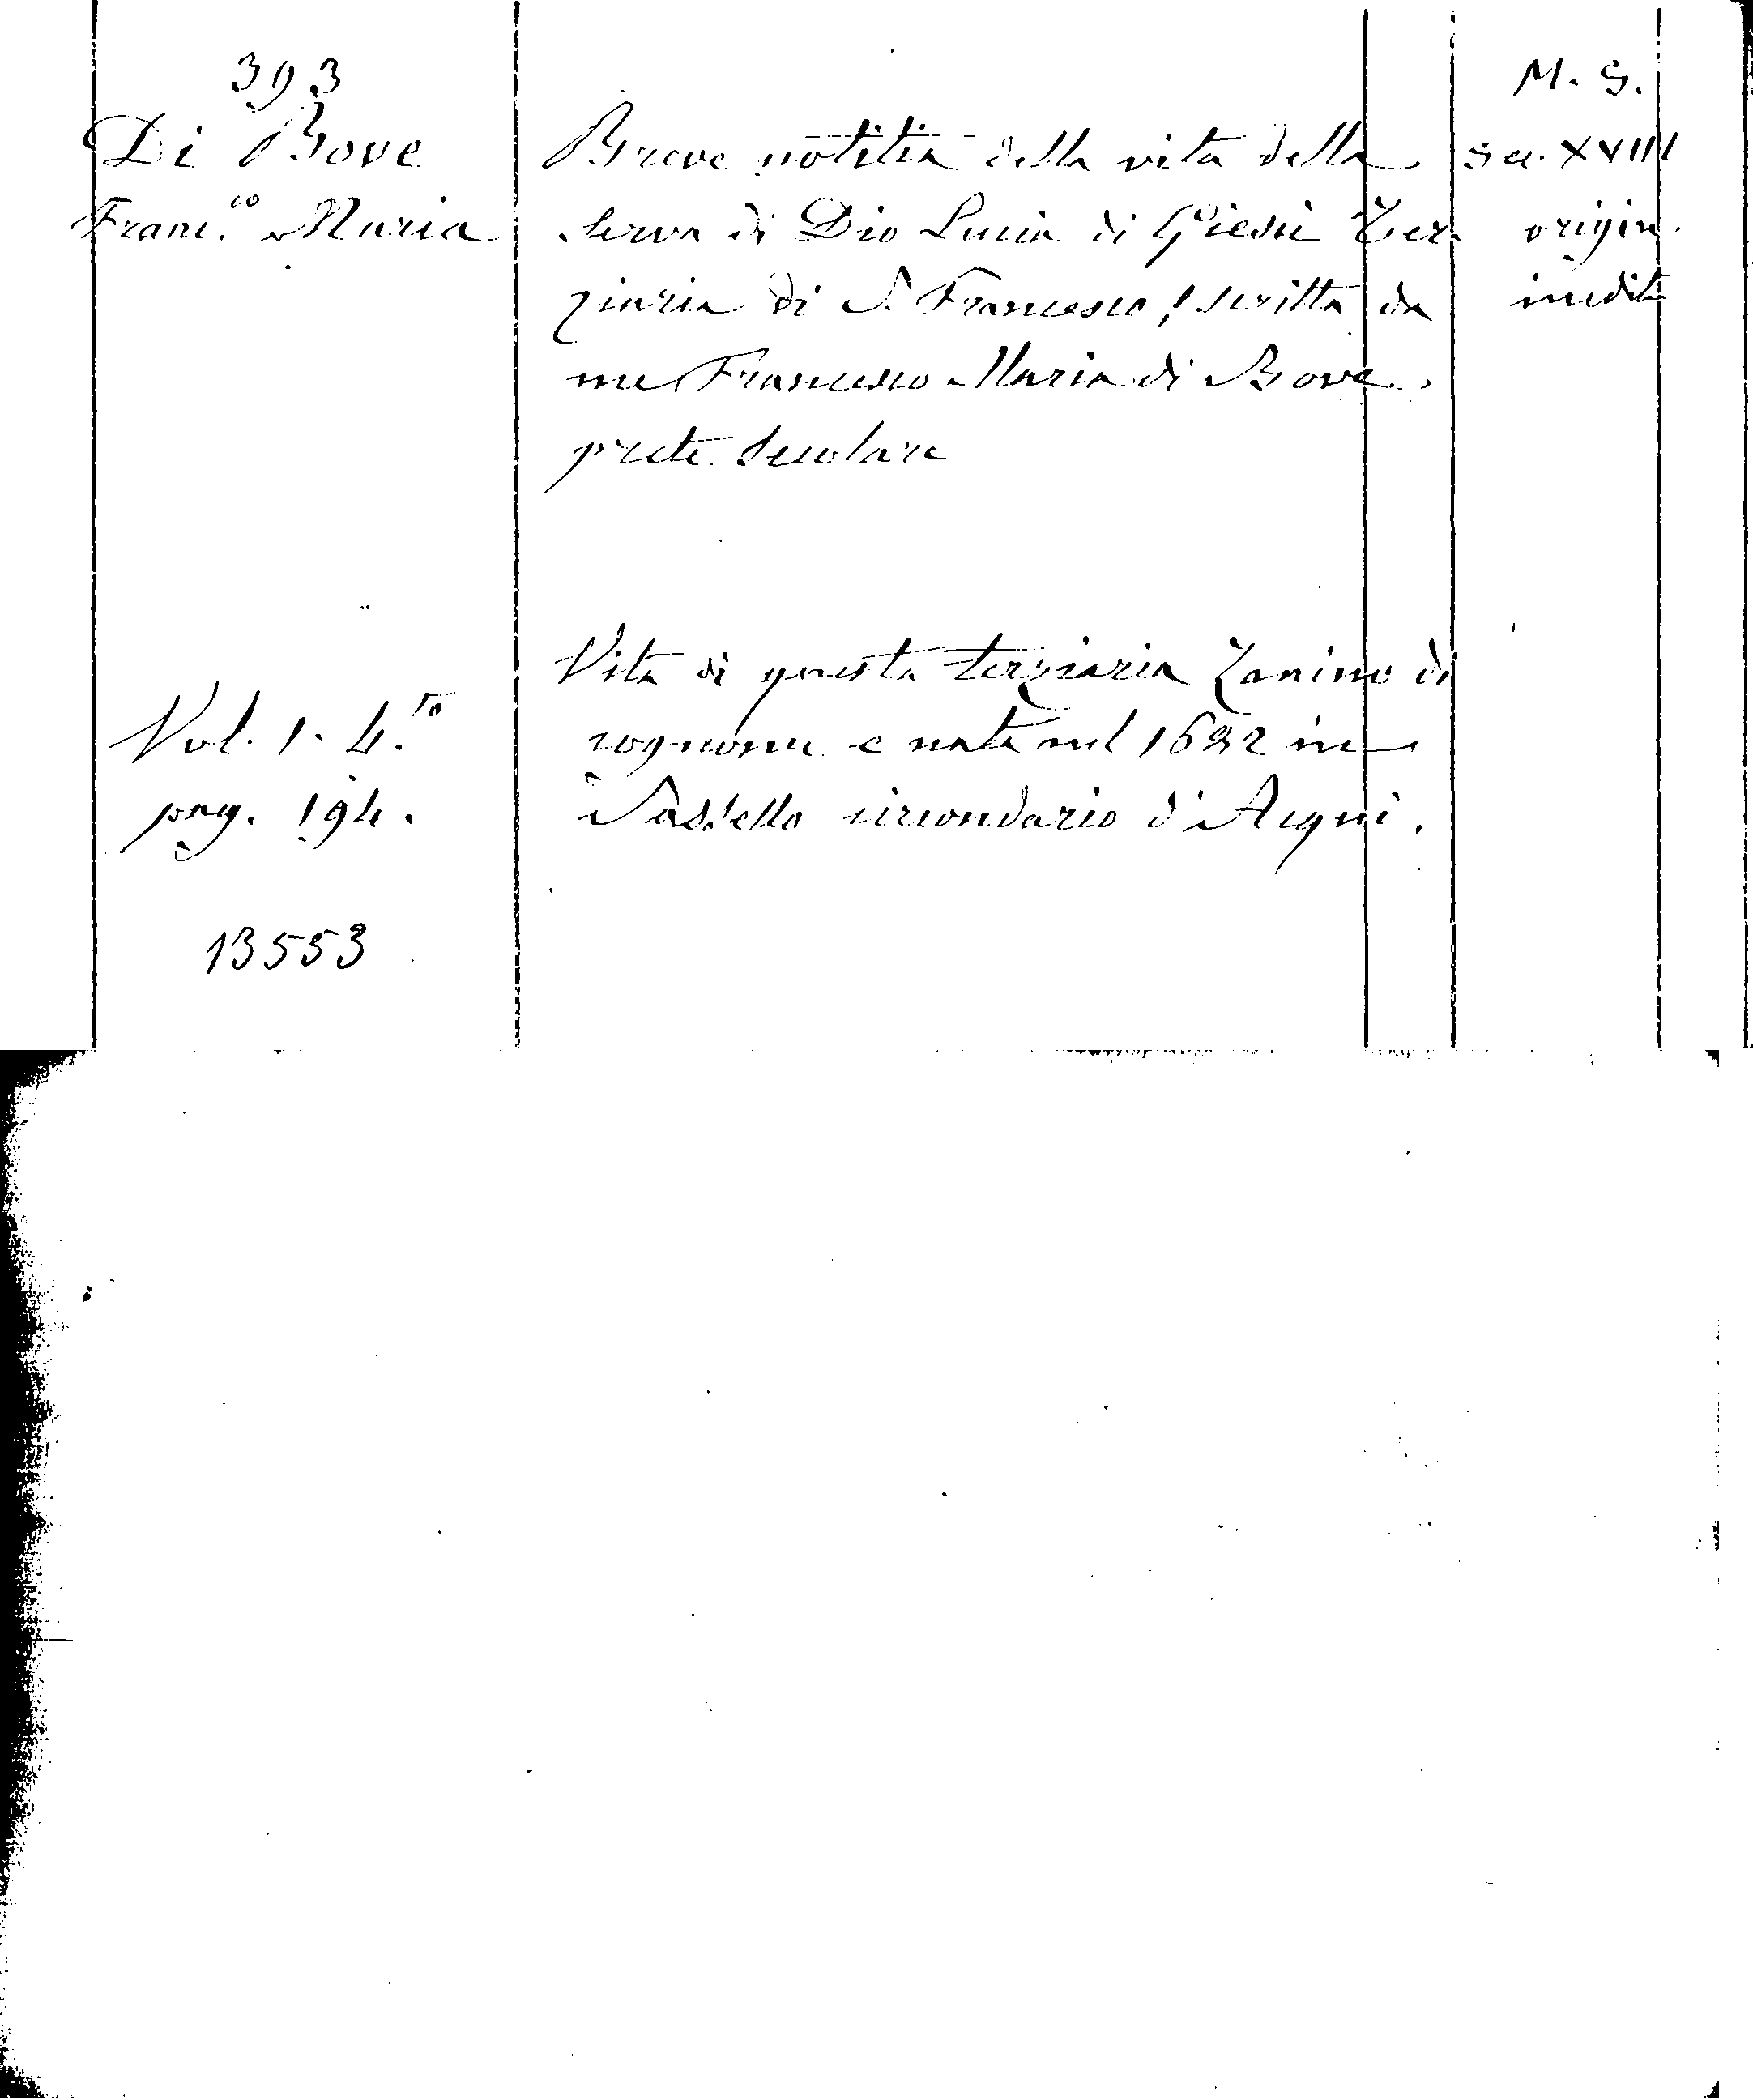 393
Di Bove
Franc.co Maria
Breve notitia della vita della
serva di Dio Lucia di Giesù Ter-
ziaria di S. Francesco, scritta da
me Francesco Maria di Bove
prete secolare
M. S.
sec. XVIII
origin.
inedito
Vita di questa terziaria Zanino di
cognome e nata nel 1622 in
Sassello circondario di Acqui.
Vol. 1. 4.to
pag. 194.
13553